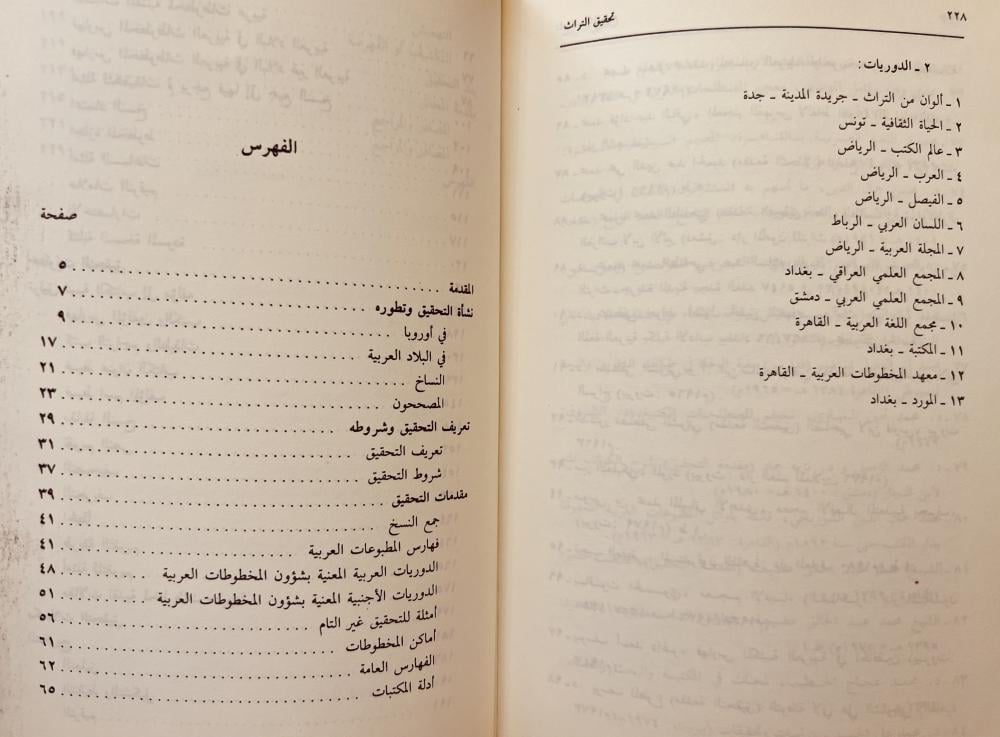 ٢٢٨
تحقيق التراث
٢ ـ الدوريات :
١ ـ ألوان من التراث ـ جريدة المدينة ـ جدة
٢ ـ الحياة الثقافية ـ تونس
٣ ـ عالم الكتب ـ الرياض
٤ ـ العرب ـ الرياض
٥ ـ الفيصل ـ الرياض
٦ ـ اللسان العربي ـ الرباط
٧ ـ المجلة العربية ـ الرياض
٨ ـ المجمع العلمي العراقي ـ بغداد
٩ ـ المجمع العلمي العربي ـ دمشق
١٠ ـ مجمع اللغة العربية ـ القاهرة
١١ ـ المكتبة ـ بغداد
١٢ ـ معهد المخطوطات العربية ـ القاهرة
١٣ ـ المورد ـ بغداد
الفهرس
صفحة
المقدمة ........ ٥
نشأة التحقيق وتطوره ........ ٧
في أوروبا ........ ٩
في البلاد العربية ........ ١٧
النساخ ........ ٢١
المصححون ........ ٢٣
تعريف التحقيق وشروطه ........ ٢٩
تعريف التحقيق ........ ٣١
شروط التحقيق ........ ٣٧
مقدمات التحقيق ........ ٣٩
جمع النسخ ........ ٤١
فهارس المطبوعات العربية ........ ٤١
الدوريات العربية المعنية بشؤون المخطوطات العربية ........ ٤٨
الدوريات الأجنبية المعنية بشؤون المخطوطات العربية ........ ٥١
أمثلة للتحقيق غير التام ........ ٥٦
أماكن المخطوطات ........ ٦١
الفهارس العامة ........ ٦٢
أدلة المكتبات ........ ٦٥